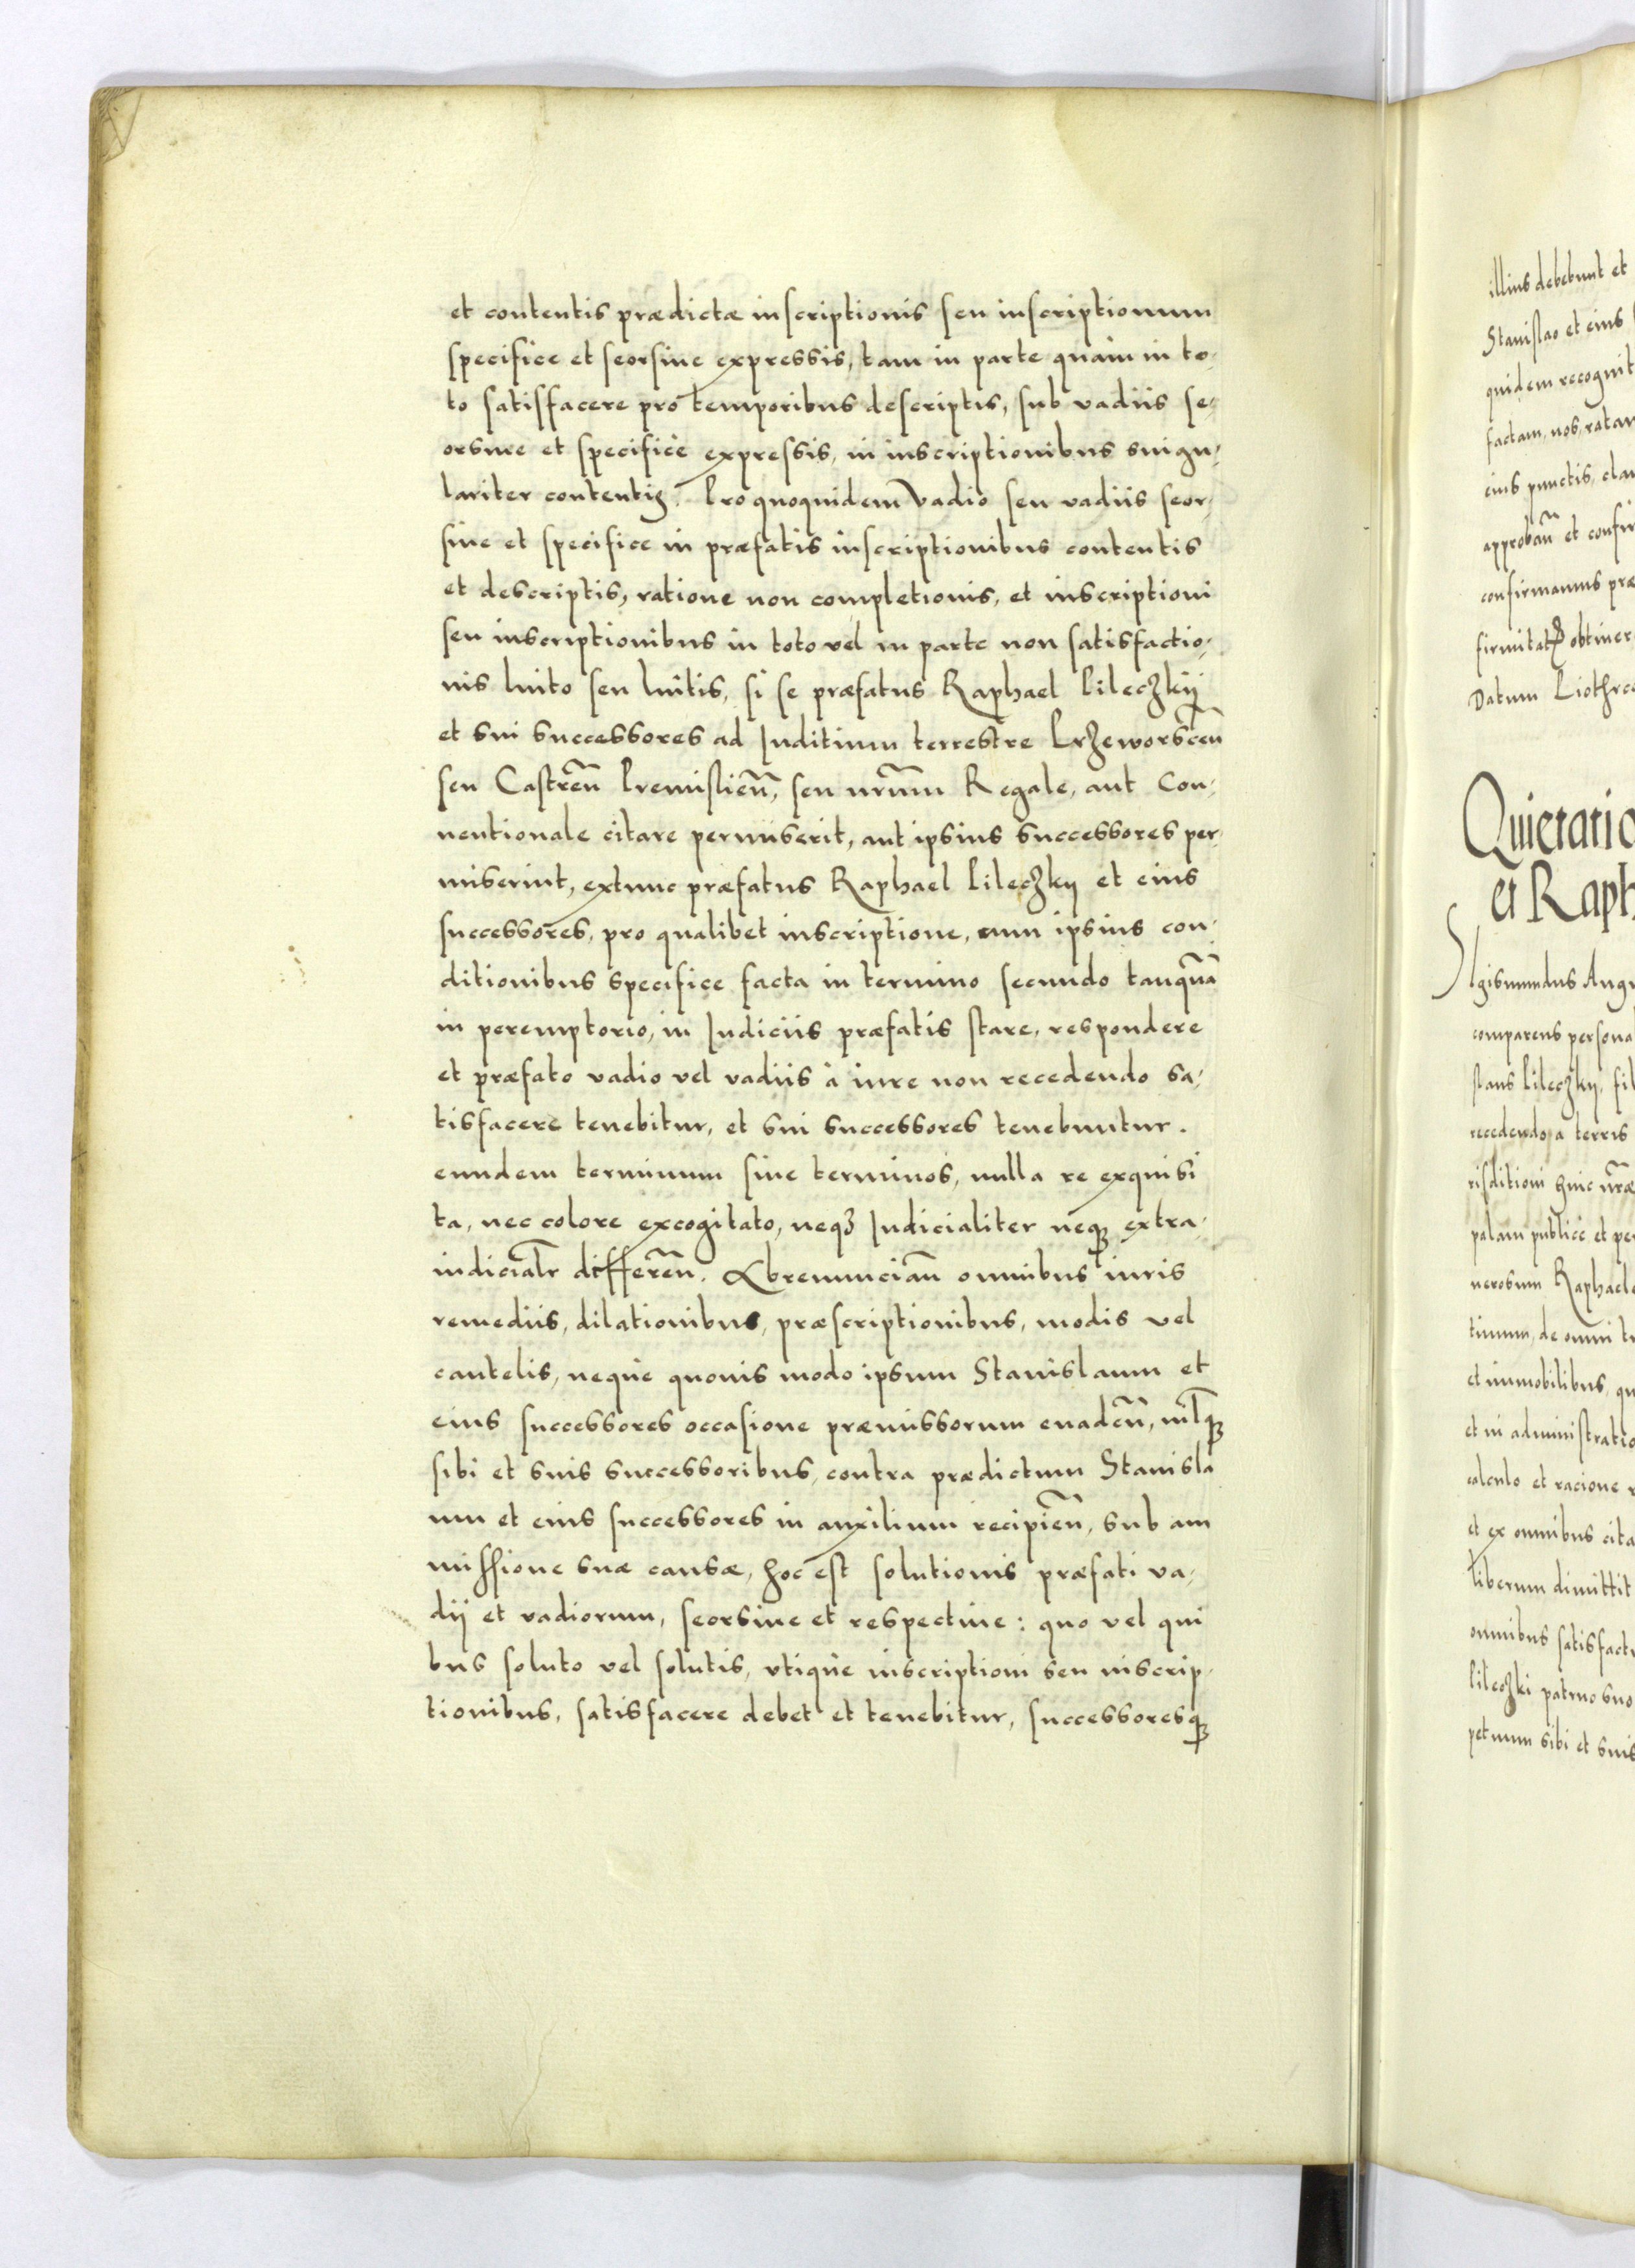 et contentis prædictæ inscriptionis seu inscriptionum
specifice et seorsiue expressis, tam in parte quàm in to-
to satisfacere pro temporibus descriptis, sub vadiis se-
orsiue et specificè expressis, in inscriptionibus singu-
lariter contentis. Pro quoquidem Vadio seu vadiis seor-
siue et specifice in præfatis inscriptionibus contentis
et descriptis, ratione non completionis, et inscriptioni
seu inscriptionibus in toto vel in parte non satisfactio-
nis luito seu luitis, si se præfatus Raphael Pileczkij
et sui successores ad Iuditium terrestre Przeworscen̄
seu Castren̄ Premislien̄, seu nr̄um Regale, aut Con-
uentionale citare permiserit, aut ipsius successores per-
miserint, extunc præfatus Raphael Pileczky et eius
successores, pro qualibet inscriptione, cum ipsius con-
ditionibus specifice facta in termino secundo tanquā
in peremptorio, in Iudiciis præfatis stare, respondere
et præfato vadio vel vadiis à iure non recedendo sa-
tisfacere tenebitur, et sui successores tenebuntur.
eundem terminum siue terminos, nulla re exquisi
ta, nec colore excogitato, neqȝ Iudicialiter neqȝ extra-
iudicialr̄ differen̄. Abrenuncian̄ omnibus iuris
remediis, dilationibus, præscriptionibus, modis vel
cautelis, neque quouis modo ipsum Stanislaum et
eius successores occasione præmissorum euaden̄, nilqȝ
sibi et suis successoribus, contra prædictum Stanisla
um et eius successores in auxilium recipien̄, sub am
missione suæ causæ, hoc est solutionis præfati va-
dij et vadiorum, seorsiue et respectiue: quo vel qui
bus soluto vel solutis, vtique inscriptioni seu inscrip-
tionibus, satisfacere debet et tenebitur, successoresqȝ
illius debebunt et
Stanislao et eius
quidem recognit
factam, nos, ratam
eius punctis, clau
approban̄ et confir
confirmamus præ
obtiner
Datum
Quietatio
et Raph
Sigismundus Augu
comparens persona
Pileczky, fil
recedendo a terris
risditioni huic nr̄æ
palam publice et per
nerosum Raphaele
timum, de omni
et immobilibus, qu
et in administratio
calculo et racione
et ex omnibus cita
liberum dimittit
omnibus satisfact
Pileczki patruo suo
petuum sibi et suis